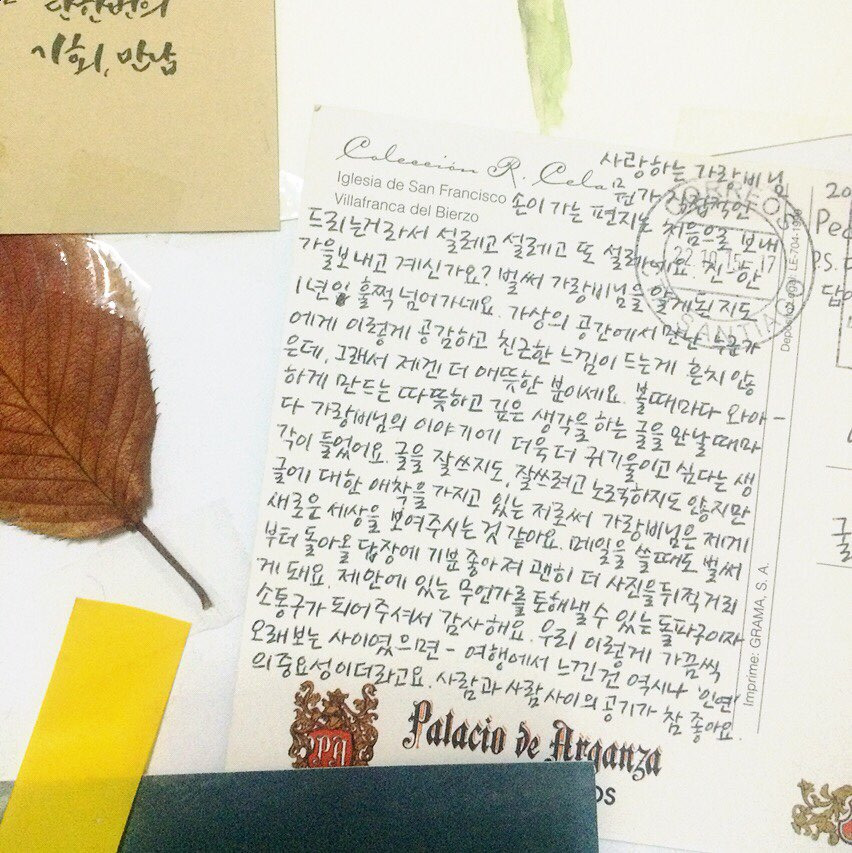 단한번의
기회, 만남
Colección R. Cela
Iglesia de San Francisco
Villafranca del Bierzo
사랑하는 가랑비님
손이 가는 편지는 처음으로 보내
드리는거라서 설레고 설레고 또 설레네요. 진한
가을보내고 계신가요? 벌써 가랑비님을 알게된지도
1년이 훌쩍 넘어가네요. 가상의 공간에서 만난 누군가
에게 이렇게 공감하고 친근한 느낌이 드는게 흔치 않
은데, 그래서 제겐 더 애뜻한 분이세요. 볼때마다 와아-
하게 만드는 따뜻하고 깊은 생각을 하는 글을 만날때마
다 가랑비님의 이야기에 더욱 더 귀기울이고 싶다는 생
각이 들었어요. 글을 잘쓰지도, 잘쓰려고 노력하지도 않지만
글에 대한 애착을 가지고 있는 저로써 가랑비님은 제게
새로운 세상을 보여주시는 것 같아요. 메일을 쓸때도 벌써
부터 돌아올 답장에 기분 좋아져 괜히 더 사진을 뒤적거리
게 돼요. 제안에 있는 무언가를 토해낼 수 있는 돌파구이자
소통구가 되어주셔서 감사해요. 우리 이렇게 가끔씩
오래 보는 사이였으면- 여행에서 느낀건 역시나 '인연'
의 중요성이더라고요. 사람과 사람 사이의 공기가 참 좋아요.
CORREOS
22.10.15-17
SANTIAGO
Imprime: GRAMA, S. A.
PA
Palacio de Arganza
OS
20
Pe
P.S.
답